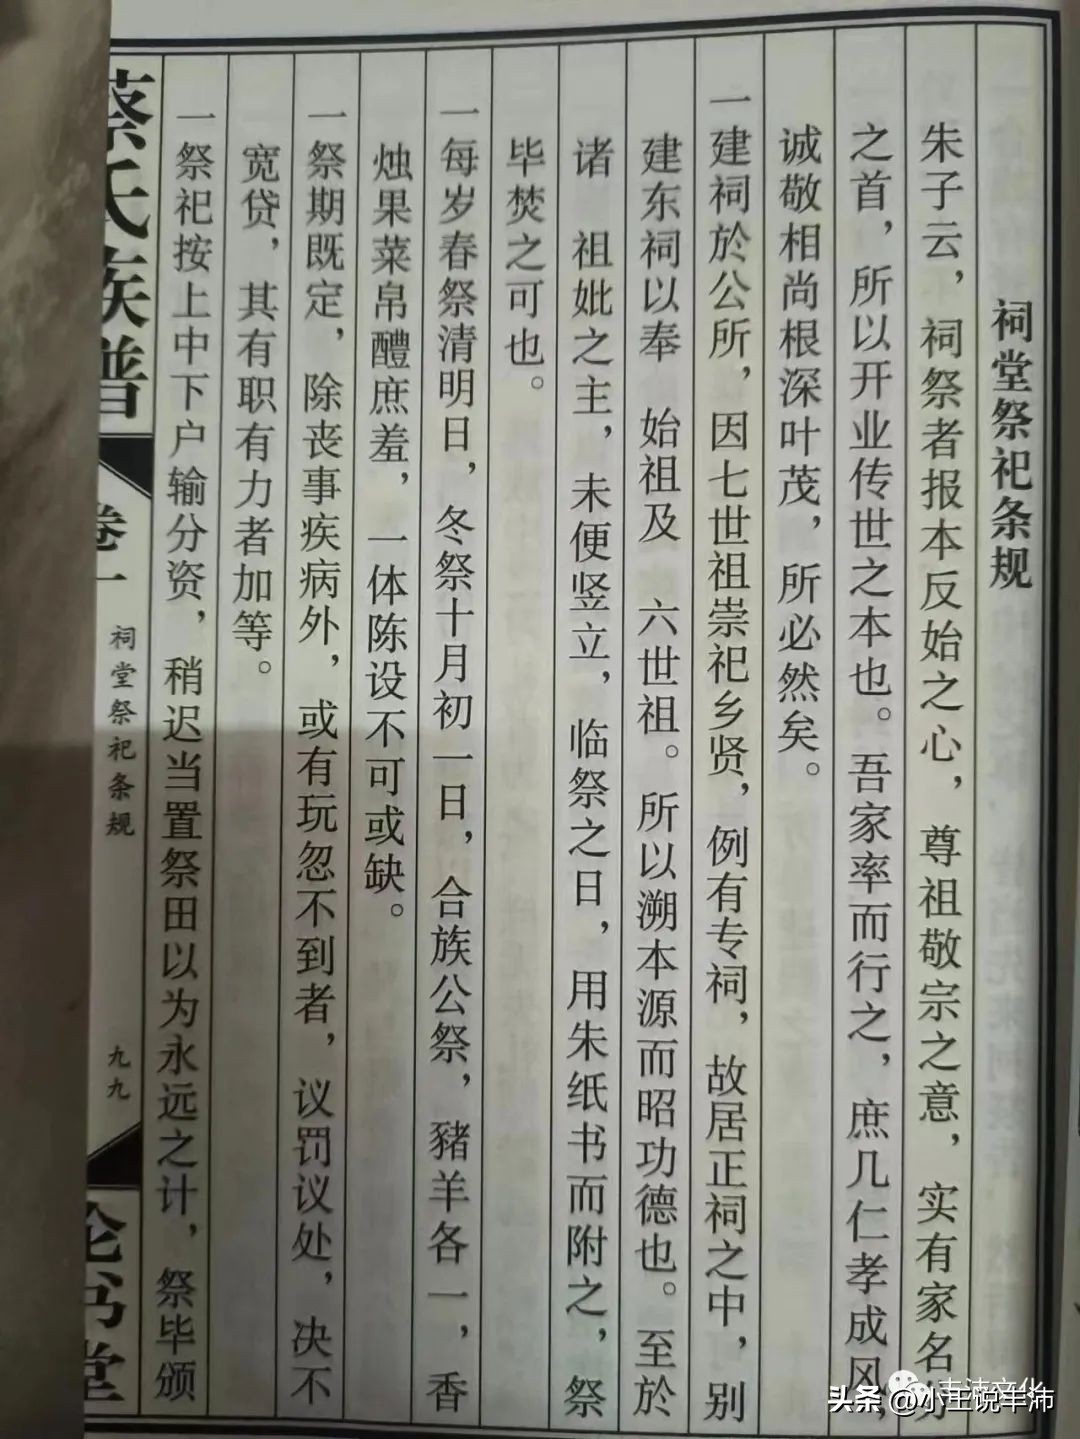 祠堂祭祀条规
朱子云，祠祭者报本反始之心，尊祖敬宗之意，实有家名分
之首，所以开业传世之本也。吾家率而行之，庶几仁孝成风，
诚敬相尚根深叶茂，所必然矣。
一建祠於公所，因七世祖崇祀乡贤，例有专祠，故居正祠之中，别
建东祠以奉 始祖及 六世祖。所以溯本源而昭功德也。至於
诸 祖妣之主，未便竖立，临祭之日，用朱纸书而附之，祭
毕焚之可也。
一每岁春祭清明日，冬祭十月初一日，合族公祭，豬羊各一，香
烛果菜帛醴庶羞，一体陈设不可或缺。
一祭期既定，除丧事疾病外，或有玩忽不到者，议罚议处，决不
宽贷，其有职有力者加等。
一祭祀按上中下户输分资，稍迟当置祭田以为永远之计，祭毕颁
蔡氏族谱
卷一
祠堂祭祀条规
九九
书堂
头条 @小王说丰沛